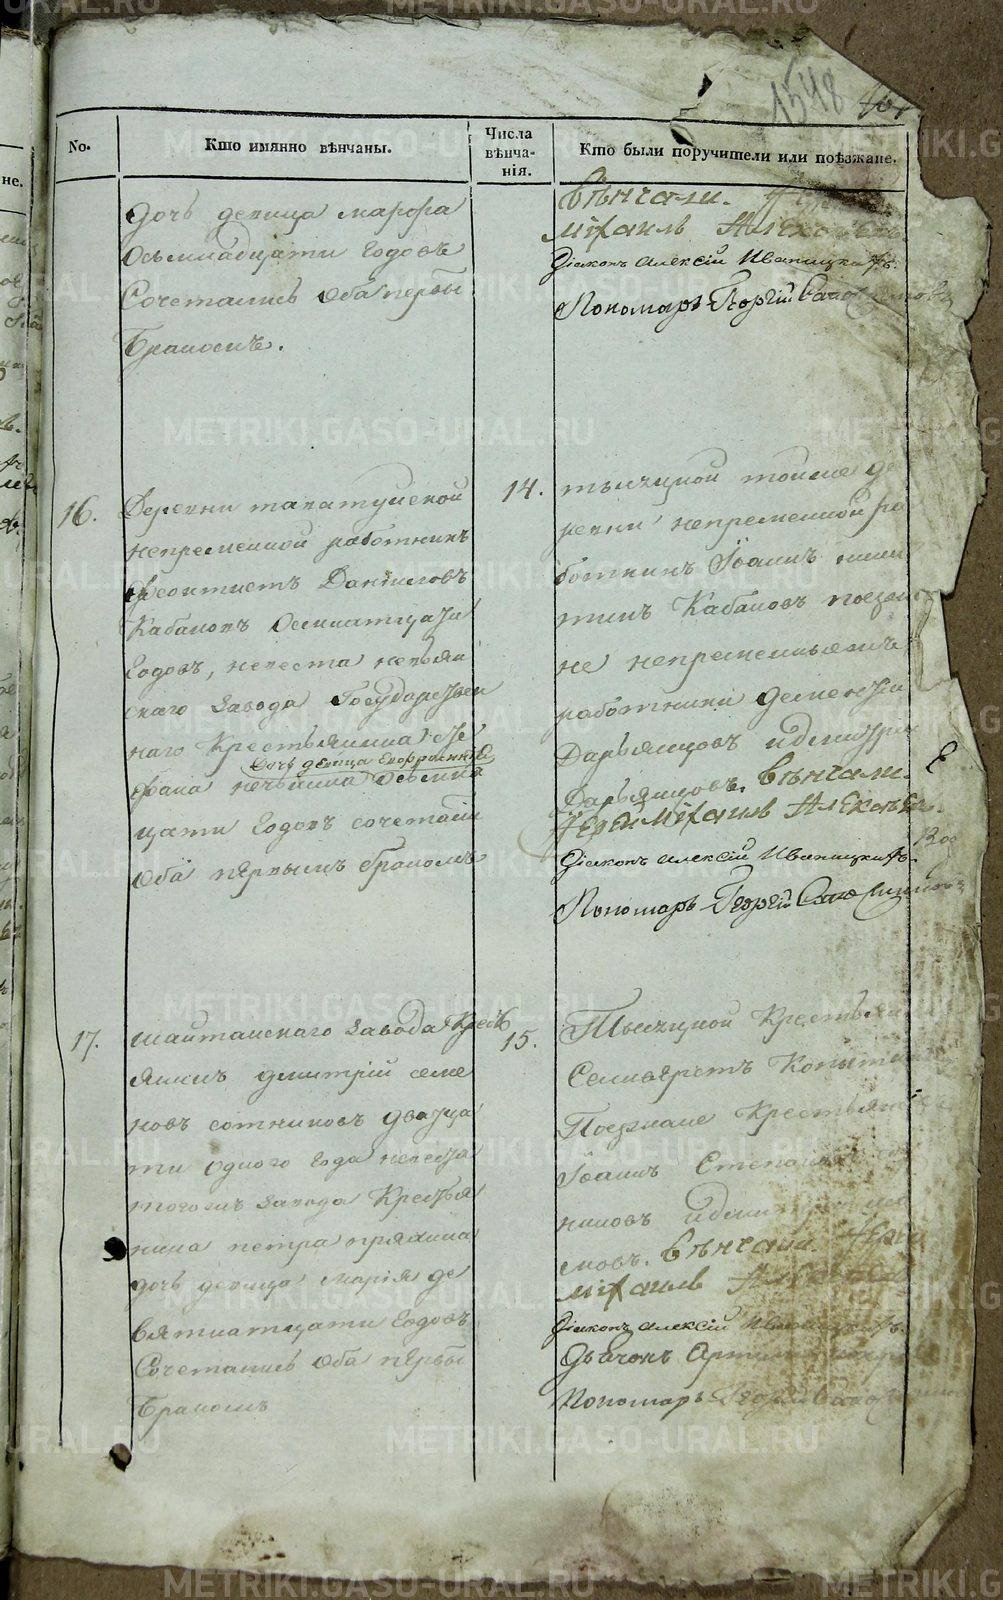 1548
No.
Кто имянно вѣнчаны.
Числа
вѣнча-
нія.
Кто были поручители или поѣзжане.
дочь девица марѳа
осьмнадцати годовъ
Сочетались оба первы
бракомъ.
Вѣнчали.
михаилъ Алексѣевъ
Діаконъ Алексій Иваницкихъ.
Пономарь Георгій
16.
Деревни таватуйской
непременной работникъ
Феоктистъ Даніиловъ
Кабаковъ осмнатцати
годовъ, невеста невьян
скаго завода Государствен
наго Крестьянина Сте
дочь девица
фана осьмна
цати годовъ сочетались
оба первымъ бракомъ
14.
тысяцкой тойже де
ревни непременной ра
ботникъ Іоаннъ ники
тинъ Кабаковъ поезжа
не непременныежъ
работники Дементій
Дарьинцовъ идмитрій
Дарьинцовъ. Вѣнчали.
Іерей михаилъ Алексѣевъ.
Діаконъ Алексій Иваницкихъ.
Пономарь Георгій
17.
шайтанскаго завода Кресть
янинъ дмитрій семе
новъ сотниковъ дватца
ти одного года невеста
тогожъ завода Крестья
нина петра пряхина
дочь девица марія де
вятнатцати годовъ
Сочетались оба первы
бракомъ
15.
Тысяцкой Крестьян
Селиверстъ
Поезжане Крестьян
Іоаннъ Степан
новъ. Вѣнчали. Іерей
михаилъ Алексѣевъ
Діаконъ Алексій Иваницкихъ.
Дьячокъ
Пономарь Георгій
METRIKI.GASO-URAL.RU